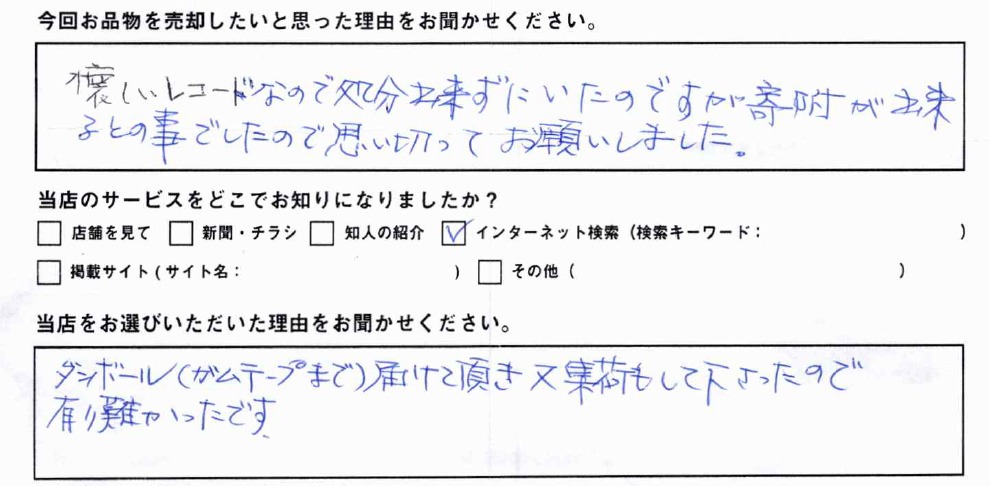 今回お品物を売却したいと思った理由をお聞かせください。
懐しいレコードなので処分出来ずにいたのですが寄附が出来
るとの事でしたので思い切ってお願いしました。
当店のサービスをどこでお知りになりましたか？
店舗を見て 新聞・チラシ 知人の紹介 インターネット検索（検索キーワード： ）
掲載サイト（サイト名： ） その他（ ）
当店をお選びいただいた理由をお聞かせください。
ダンボール（ガムテープまで）届けて頂き又集荷もして下さったので
有り難かったです